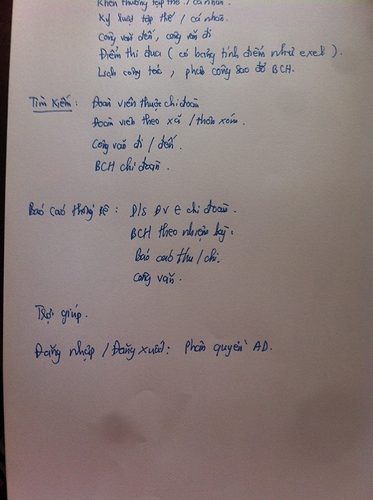 Khen thưởng tập thể / cá nhân.
Kỷ luật tập thể / cá nhân.
Công văn đến, công văn đi
Điểm thi đua ( có bảng tính điểm như exel ).
Lịch công tác, phân công sao đỏ BCH.
Tìm kiếm : Đoàn viên thuộc chi đoàn
Đoàn viên theo xã / thôn xóm.
Công văn đi / đến.
BCH chi đoàn.
Báo cáo thống kê : D/s ĐV e chi đoàn.
BCH theo nhiệm kỳ.
Báo cáo thu / chi.
Công văn.
Trợ giúp.
Đăng nhập / Đăng xuất : phân quyền AD.